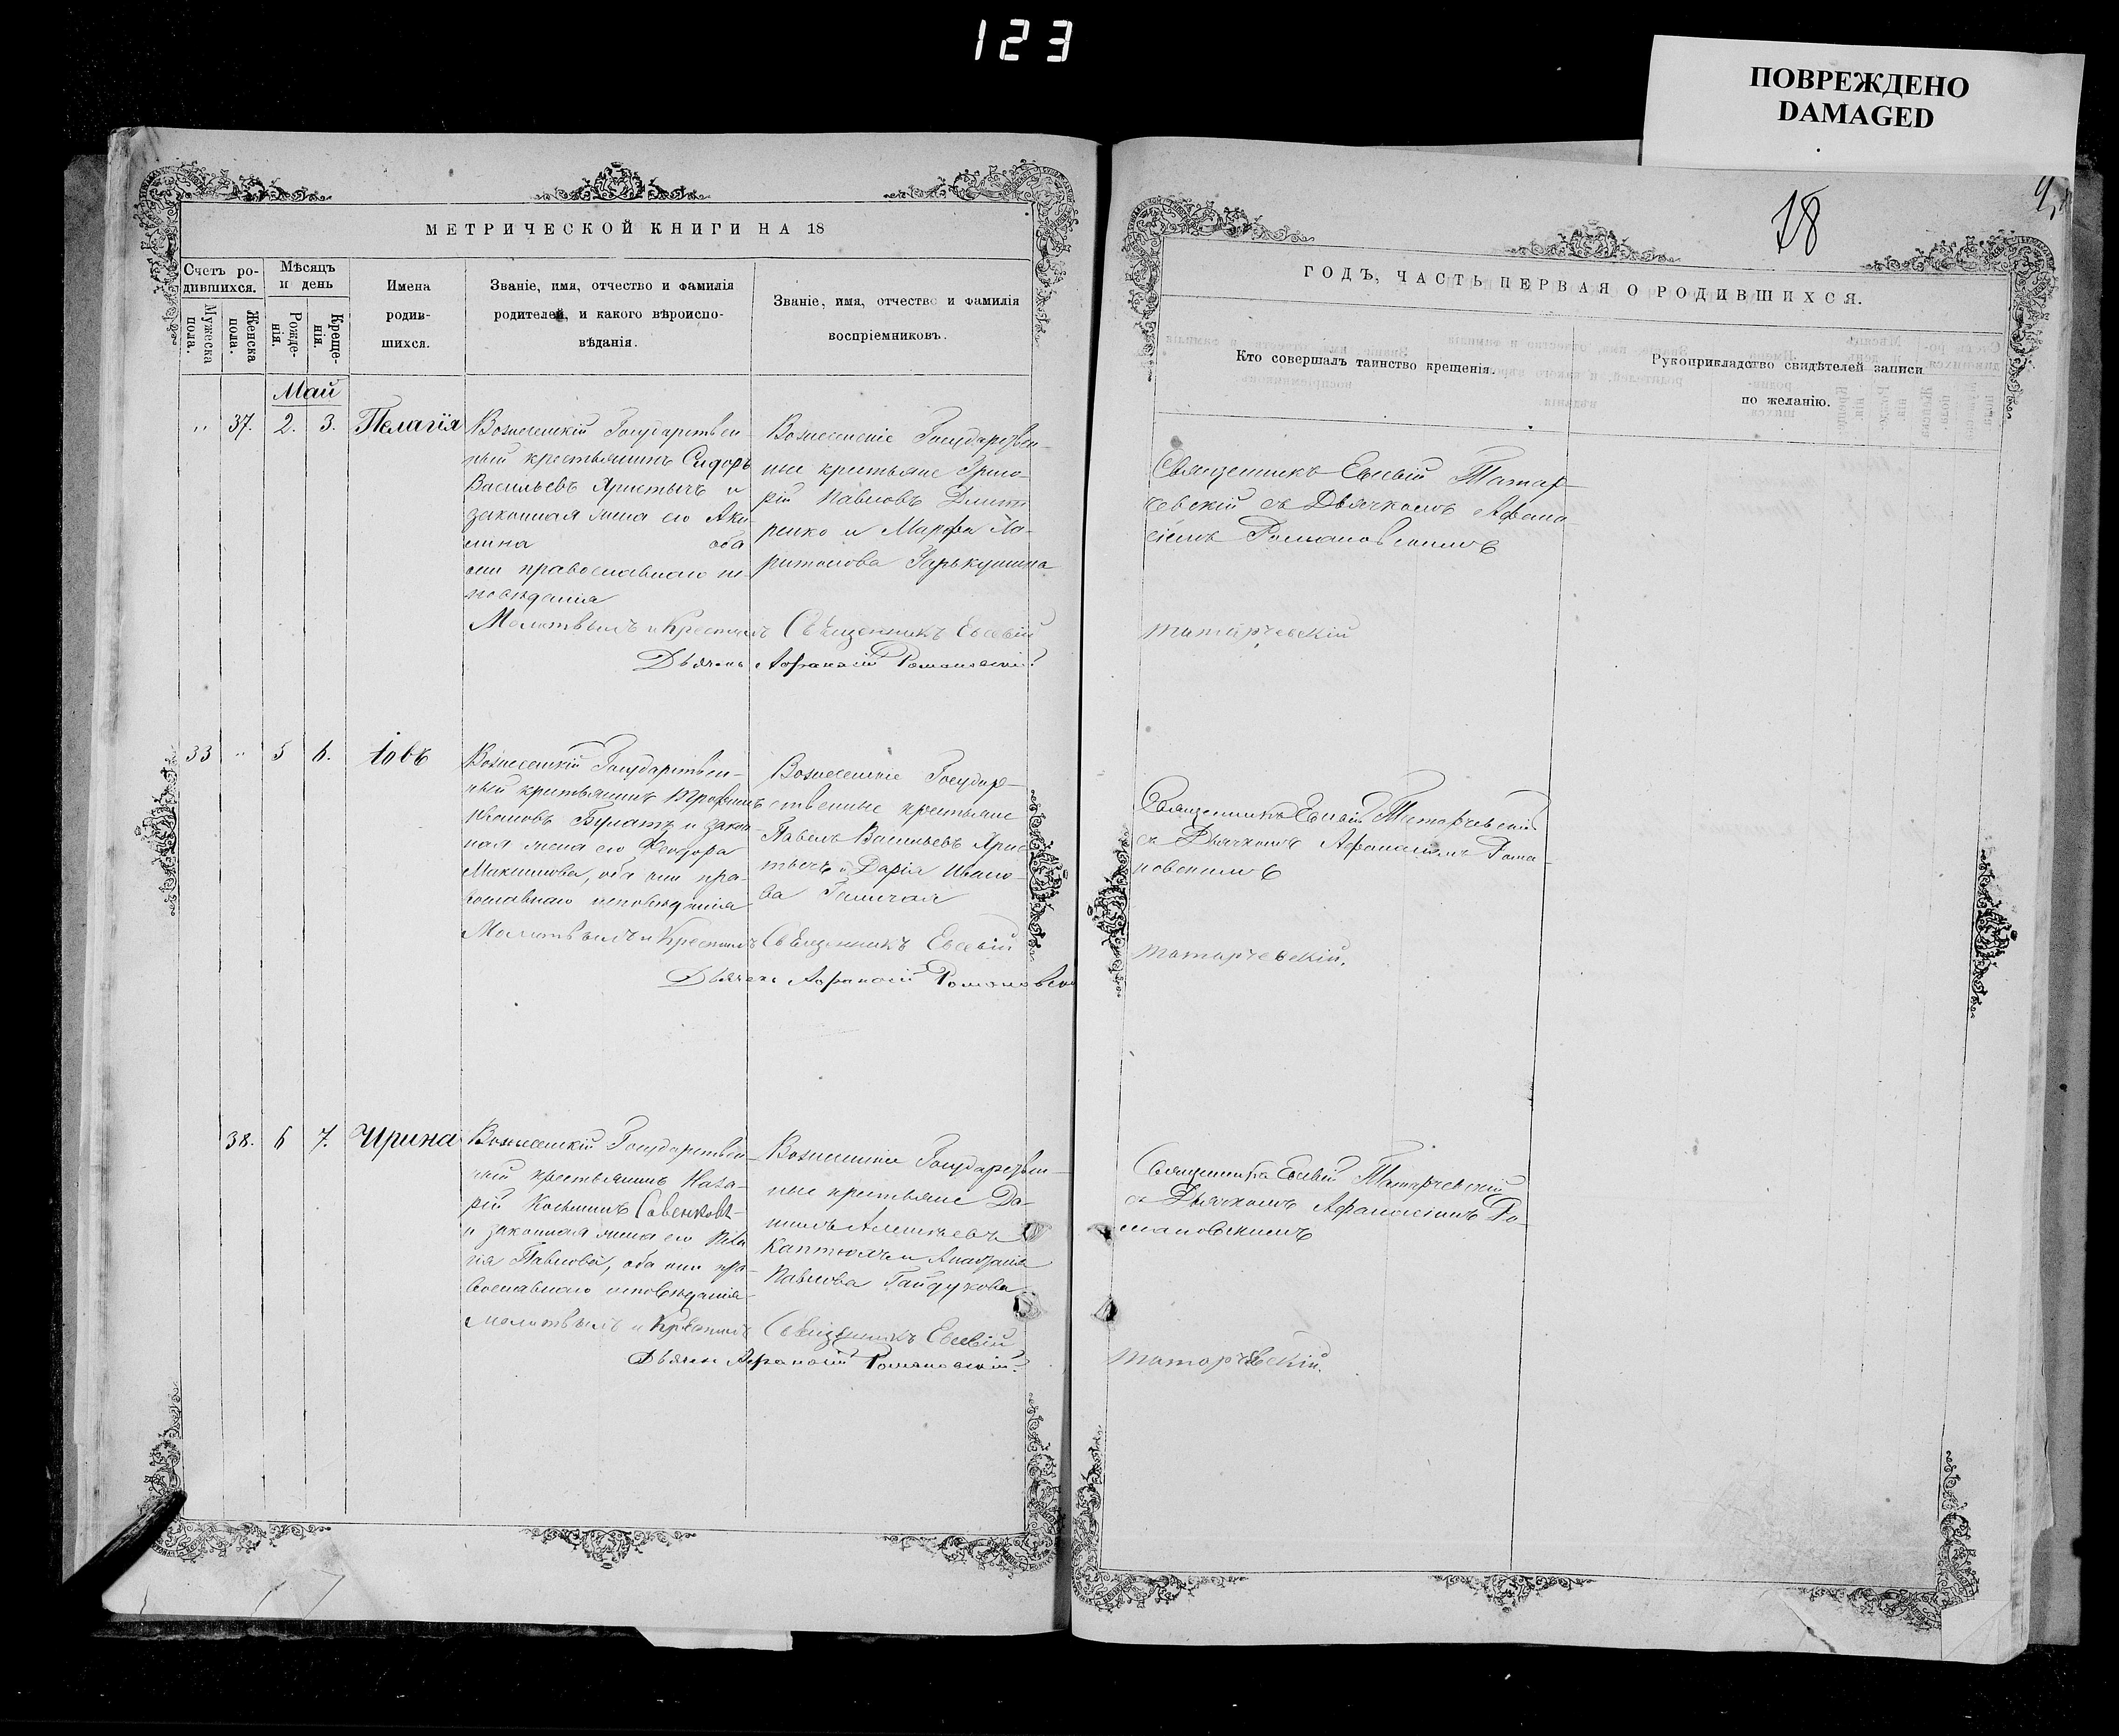 123
ПОВРЕЖДЕНО
DAMAGED
МЕТРИЧЕСКОЙ КНИГИ НА 18
Счетъ ро-
дившихся.
Мужеска
пола.
Женска
пола.
Мѣсяцъ
и день
Рожде-
нія.
Креще-
нія.
Имена
родив-
шихся.
Званіе, имя, отчество и фамилія
родителей, и какого вѣроиспо-
вѣданія.
Званіе, имя, отчество и фамилія
воспріемниковъ.
Май
37. 2. 3. Пелагія
Вознесенскій Государствен-
ный крестьянинъ Сидоръ
Васильевъ Христычъ и
законная жена его Аки-
лина оба
они православнаго ис-
повѣданія
Вознесенскіе Государствен-
ные крестьяне Григо-
рій Павловъ Дмит
ренко и Марфа Ха-
ритонова Гарькушина
Молитвилъ и Крестилъ Священникъ Евсевій
Дьячекъ Афанасій Романовскій
33 " 5 6. Іовъ
Вознесенскій Государствен-
ный крестьянинъ Трофимъ
Ивановъ Булатъ и закон-
ная жена его Феодора
Максимова, оба они пра-
вославнаго исповѣданія
Вознесенскіе Государ-
ственные крестьяне
Павелъ Васильевъ Хрис-
тычъ и Дарія Ивано-
ва
Молитвилъ и Крестилъ Священникъ Евсевій
Дьячекъ Афанасій Романовскій
38. 6 7. Ирина
Вознесенскій Государствен-
ный крестьянинъ Наза-
рій Косьминъ Савенковъ
и законная жена его
Павлова, оба они пра-
вославнаго исповѣданія
Вознесенскіе Государствен-
ные крестьяне Да-
ніилъ Алексѣевъ
и Анастасія
Павлова Гайдукова
Молитвилъ и Крестилъ Священникъ Евсевій
Дьячекъ Афанасій Романовскій
18
ГОДЪ, ЧАСТЬ ПЕРВАЯ О РОДИВШИХСЯ.
Кто совершалъ таинство крещенія.
Рукоприкладство свидѣтелей записи
по желанію.
Священникъ Евсевій Татар-
чевскій съ Дьячкомъ Афана-
сіемъ Романовскимъ
Татарчевскій
Священникъ Евсевій Татарчевскій
съ Дьячкомъ Афанасіемъ Рома-
новскимъ
Татарчевскій.
Священникъ Евсевій Татарчевскій
съ Дьячкомъ Афанасіемъ Ро-
мановскимъ
Татарчевскій.